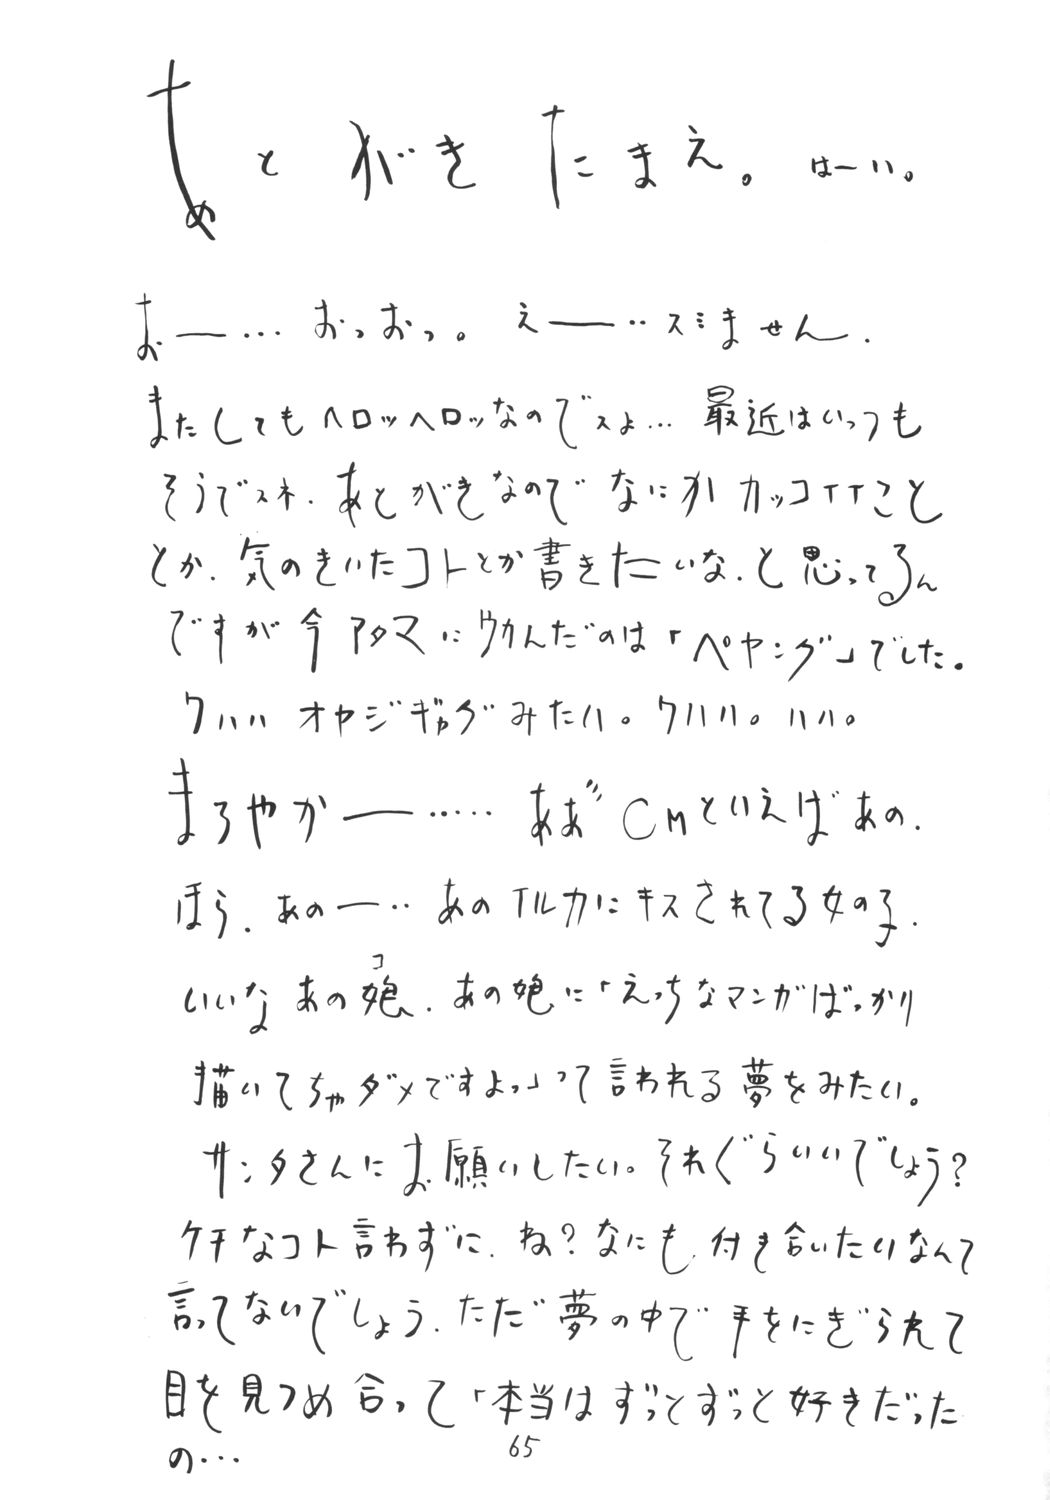 あとがきたまえ。はーい。
おー…おっおっ。えー‥スミません.
またしてもヘロッヘロッなのでスよ…最近はいっつも
そうでスネ.あとがきなのでなにかカッコイイこと
とか.気のきいたコトとか書きたいな.と思ってるん
ですが今アタマにウカんだのは「ペヤング」でした。
クハハオヤジギャグみたい。クハハ。ハハ。
まろやかー‥‥・ああ゛CMといえばあの.
ほら.あのー‥あのイルカにキスされてる女の子.
いいなあの娘コ.あの娘に「えっちなマンガばっかり
描いてちゃダメですよっ」って言われる夢をみたい。
サンタさんにお願いしたい。それぐらいいいでしょう?
ケチなコト言わずに.ね?なにも付き合いたいなんて
言ってないでしょう.ただ夢の中で手をにぎられて
目を見つめ合って「本当はずっとずっと好きだった
の…
65